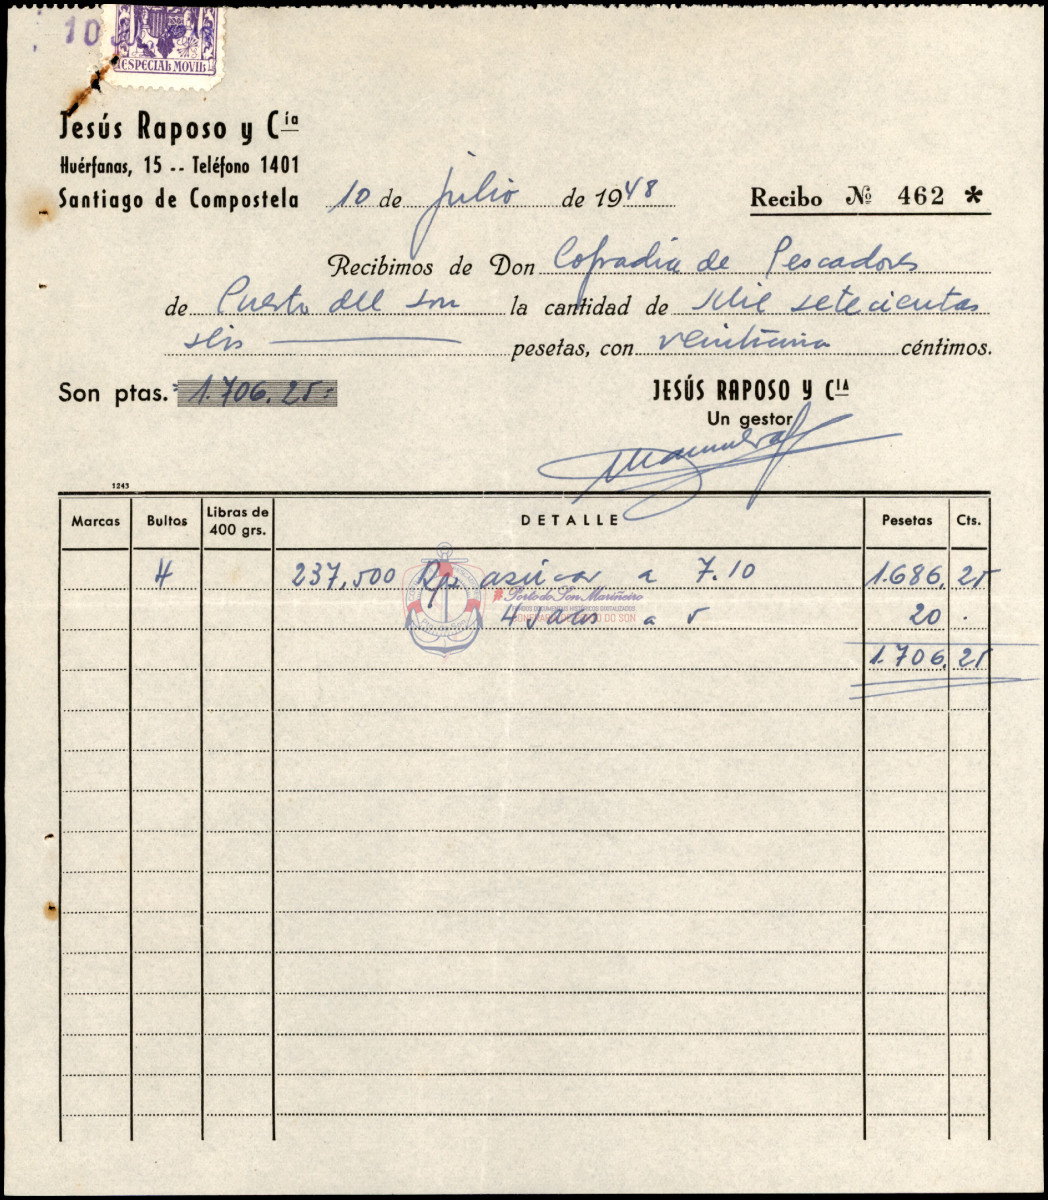 10
ESPECIAL MOVIL
Jesús Raposo y Cía
Huérfanas, 15 -- Teléfono 1401
Santiago de Compostela
10 de julio de 1948
Recibo Nº 462 *
Recibimos de Don Cofradia de Pescadores
de Puerto del Son la cantidad de Mil setecientas
seis pesetas, con céntimos.
Son ptas. 1.706,25
JESÚS RAPOSO Y CIA
Un gestor
1243
Marcas Bultos Libras de 400 grs. DETALLE Pesetas Cts.
4 237,500 Kgs azúcar a 7.10 1.686,25
#PortodoSonMariñeiro
4 sacos a 5 20 .
1.706,25